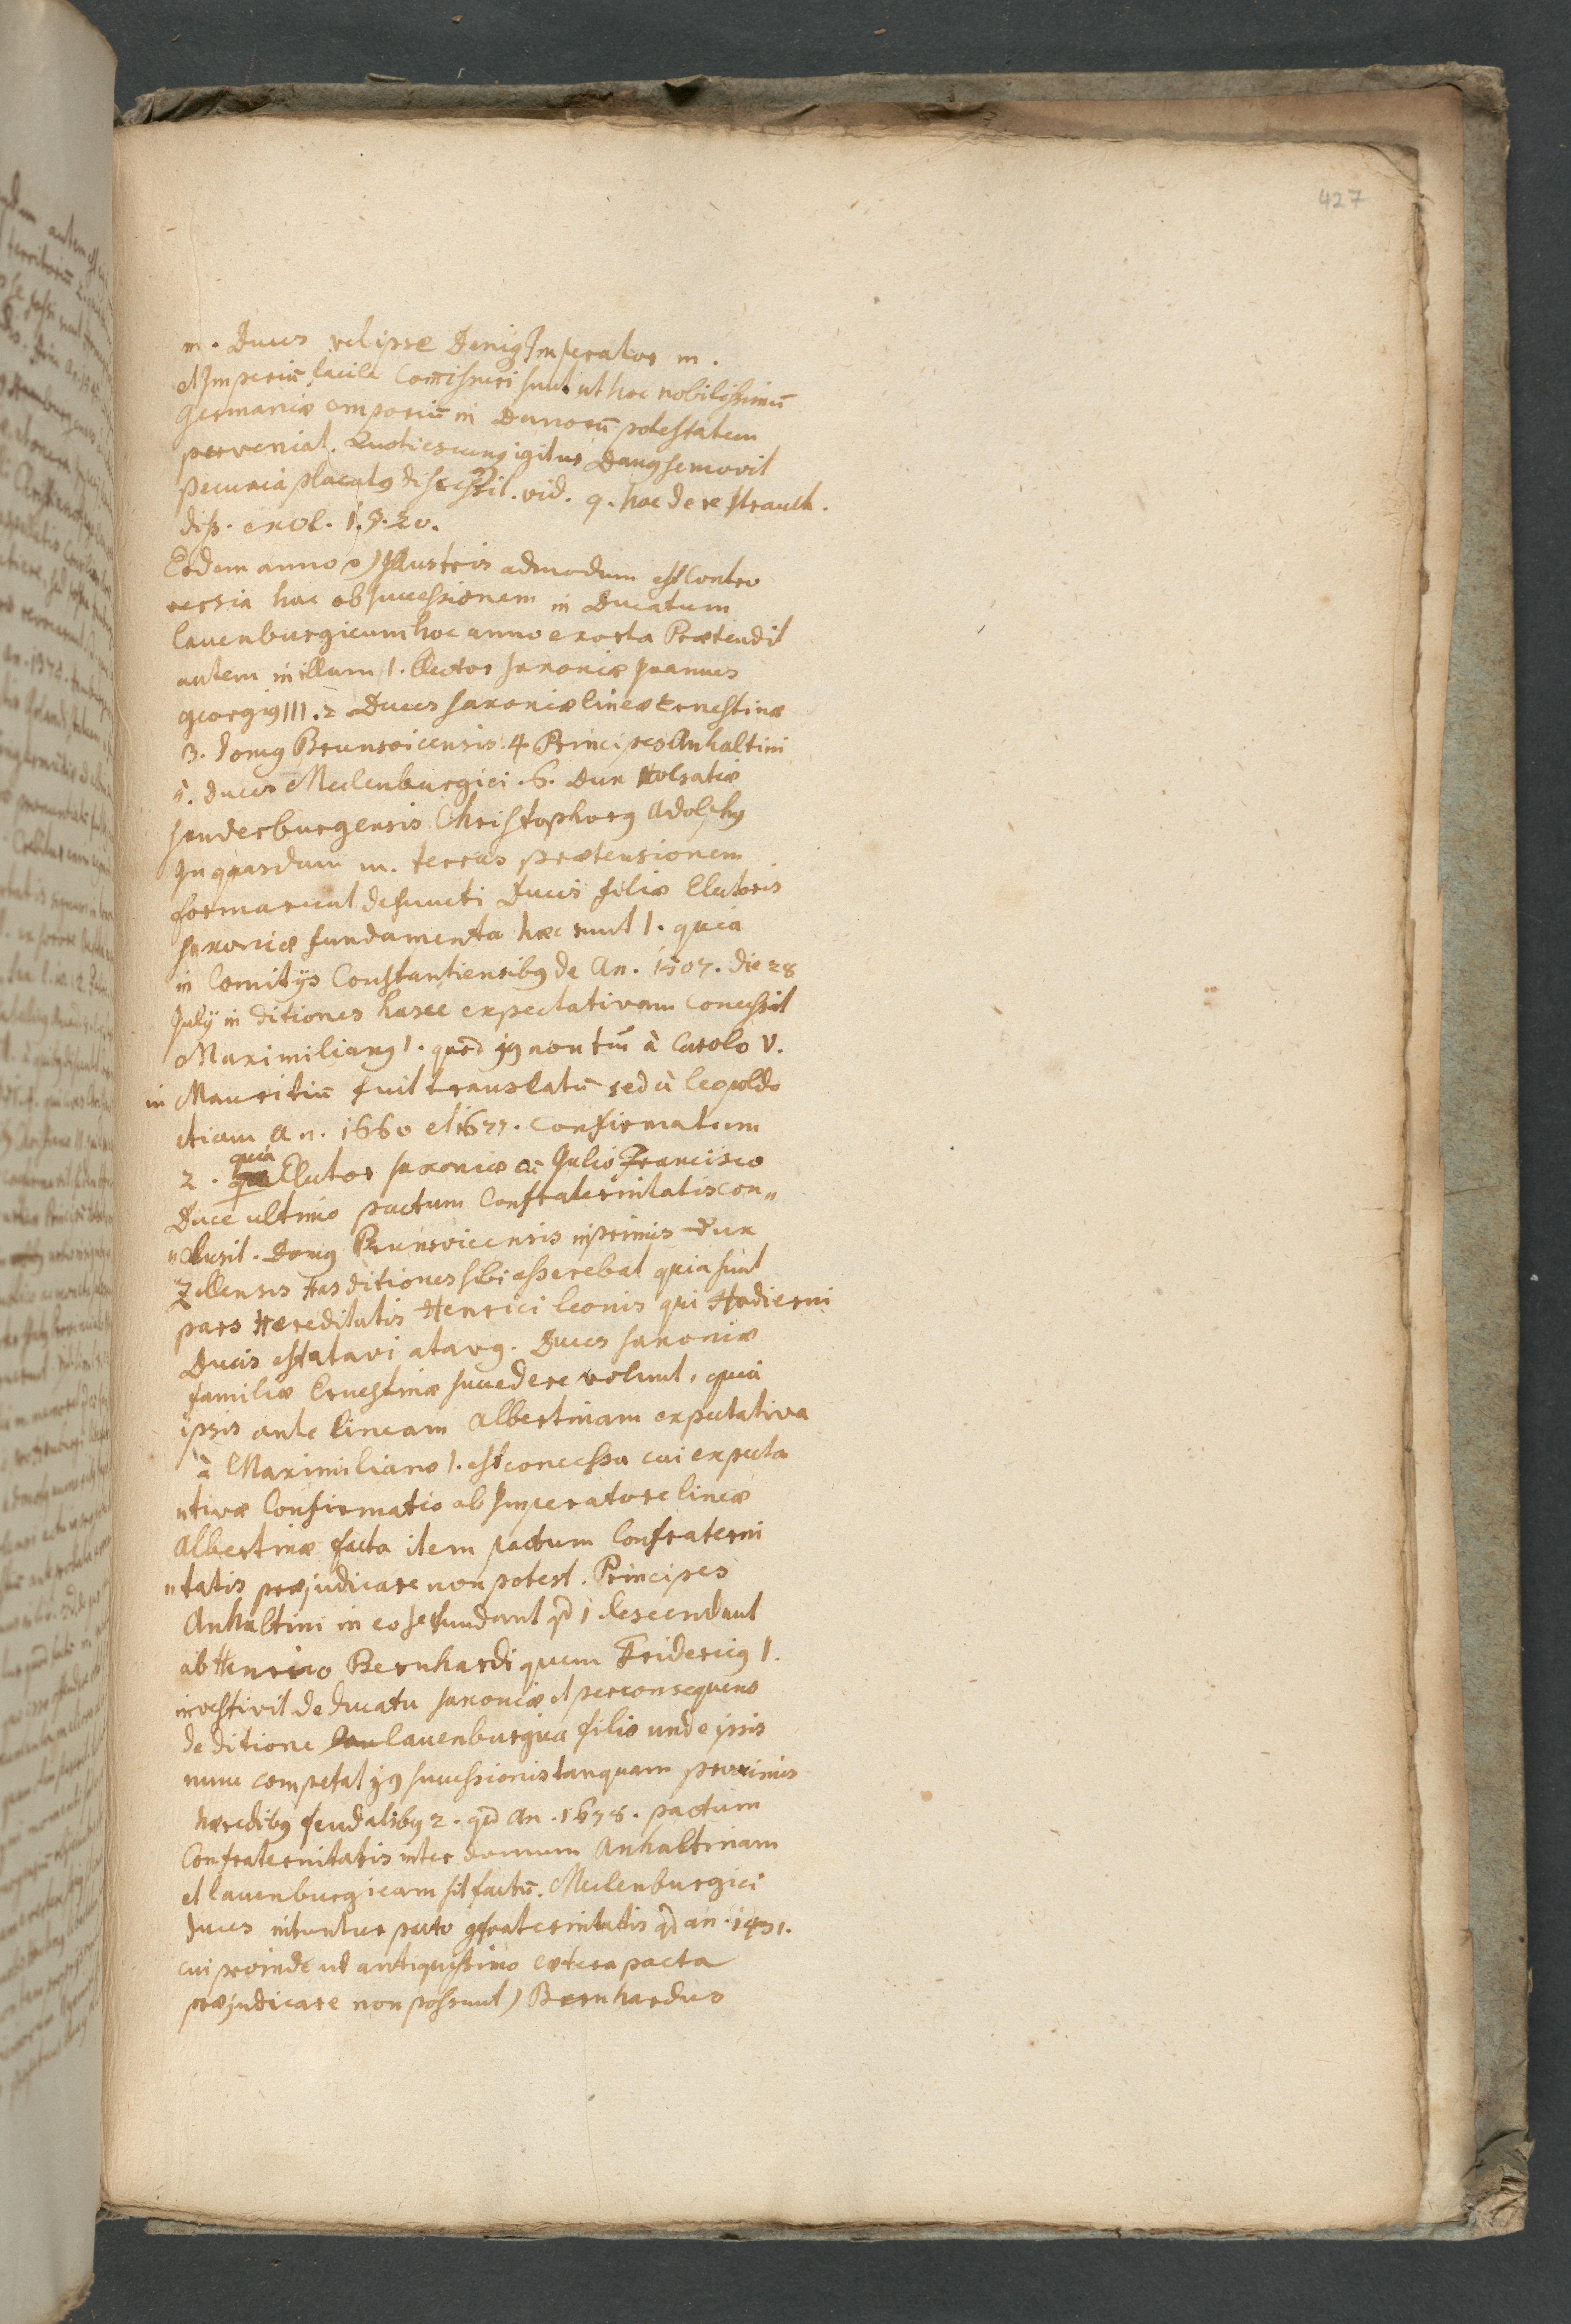 427
m. Duces vel ipse Deniq Imperator m.
et Imperiū facile Com̄issuri sunt ut hoc nobilissimū
Germaniæ emporiū in Danorū potestatem
perveniat. Quotiescunq igitur Dang se movit
pecunia placatg discessit. vid. q. hac de re Strauch.
diss. exot. 1. §. 20.
Eodem anno ) Illustris admodum est Contro
versia hac ob successionem in Ducatum
lauenburgicum hoc anno exorta Prætendit
autem in illum 1. Elector Saxoniæ Joannes
georgig III. 2 Duces Saxoniæ lineæ Ernestinæ
3. Domg Brunsvicensis 4 Principes Anhaltini
5. Duces Meclenburgici. 6. Dux Holsatiæ
Sonderburgensis Christophorg Adolphg
In quasdam m. terras prætensionem
formarunt defuncti Ducis filiæ Electoris
Saxoniæ fundamenta hæc sunt 1. quia
in Comitijs Constantiensibg de An. 1507. die 28
July in ditiones hasce expectativam concessit
Maximiliang 1. quod jg non tm̄ à Carolo V.
in Mauritiū fuit translatū sed à leopoldo
etiam An. 1660 et 1677. confirmatum
2. quia Elector Saxoniæ cū Julio Francisco
Duce ultimo pactum Confraternitatis con„
„clusit. Domg Brunsvicensis inprimis Dux
Zellensis Has ditiones sibi asserebat quia sunt
pars Hereditatis Henrici leonis qui Hodierni
Ducis est atavi atavg. Duces Saxoniæ
familiæ Ernestinæ succedere volunt, quia
ipsis ante lineam Albertinam expectativa
à Maximiliano 1. est concessa cui expecta
ativæ Confirmatio ab Imperatore lineæ
Albertinæ facta item pactum Confraterni
„tatis præjudicare non potest. Principes
Anhaltini in eo se fundant qd 1 descendant
ab Henrico Bernhardi quem Fridericg 1.
investivit de ducatu Saxoniæ et per consequens
de ditione lauenburgica filio unde ipsis
nunc competat jg successionis tanquam proximis
hæredibg feudalibg 2. qd An. 1678. pactum
Confraternitatis inter domum Anhaltinam
et lauenburgicam sit factū. Meclenburgici
Duces nituntur pacto gfraternitatis qd an. 1431.
cui proinde ut antiquissimo cætera pacta
præjudicare non possunt) Bernhardus